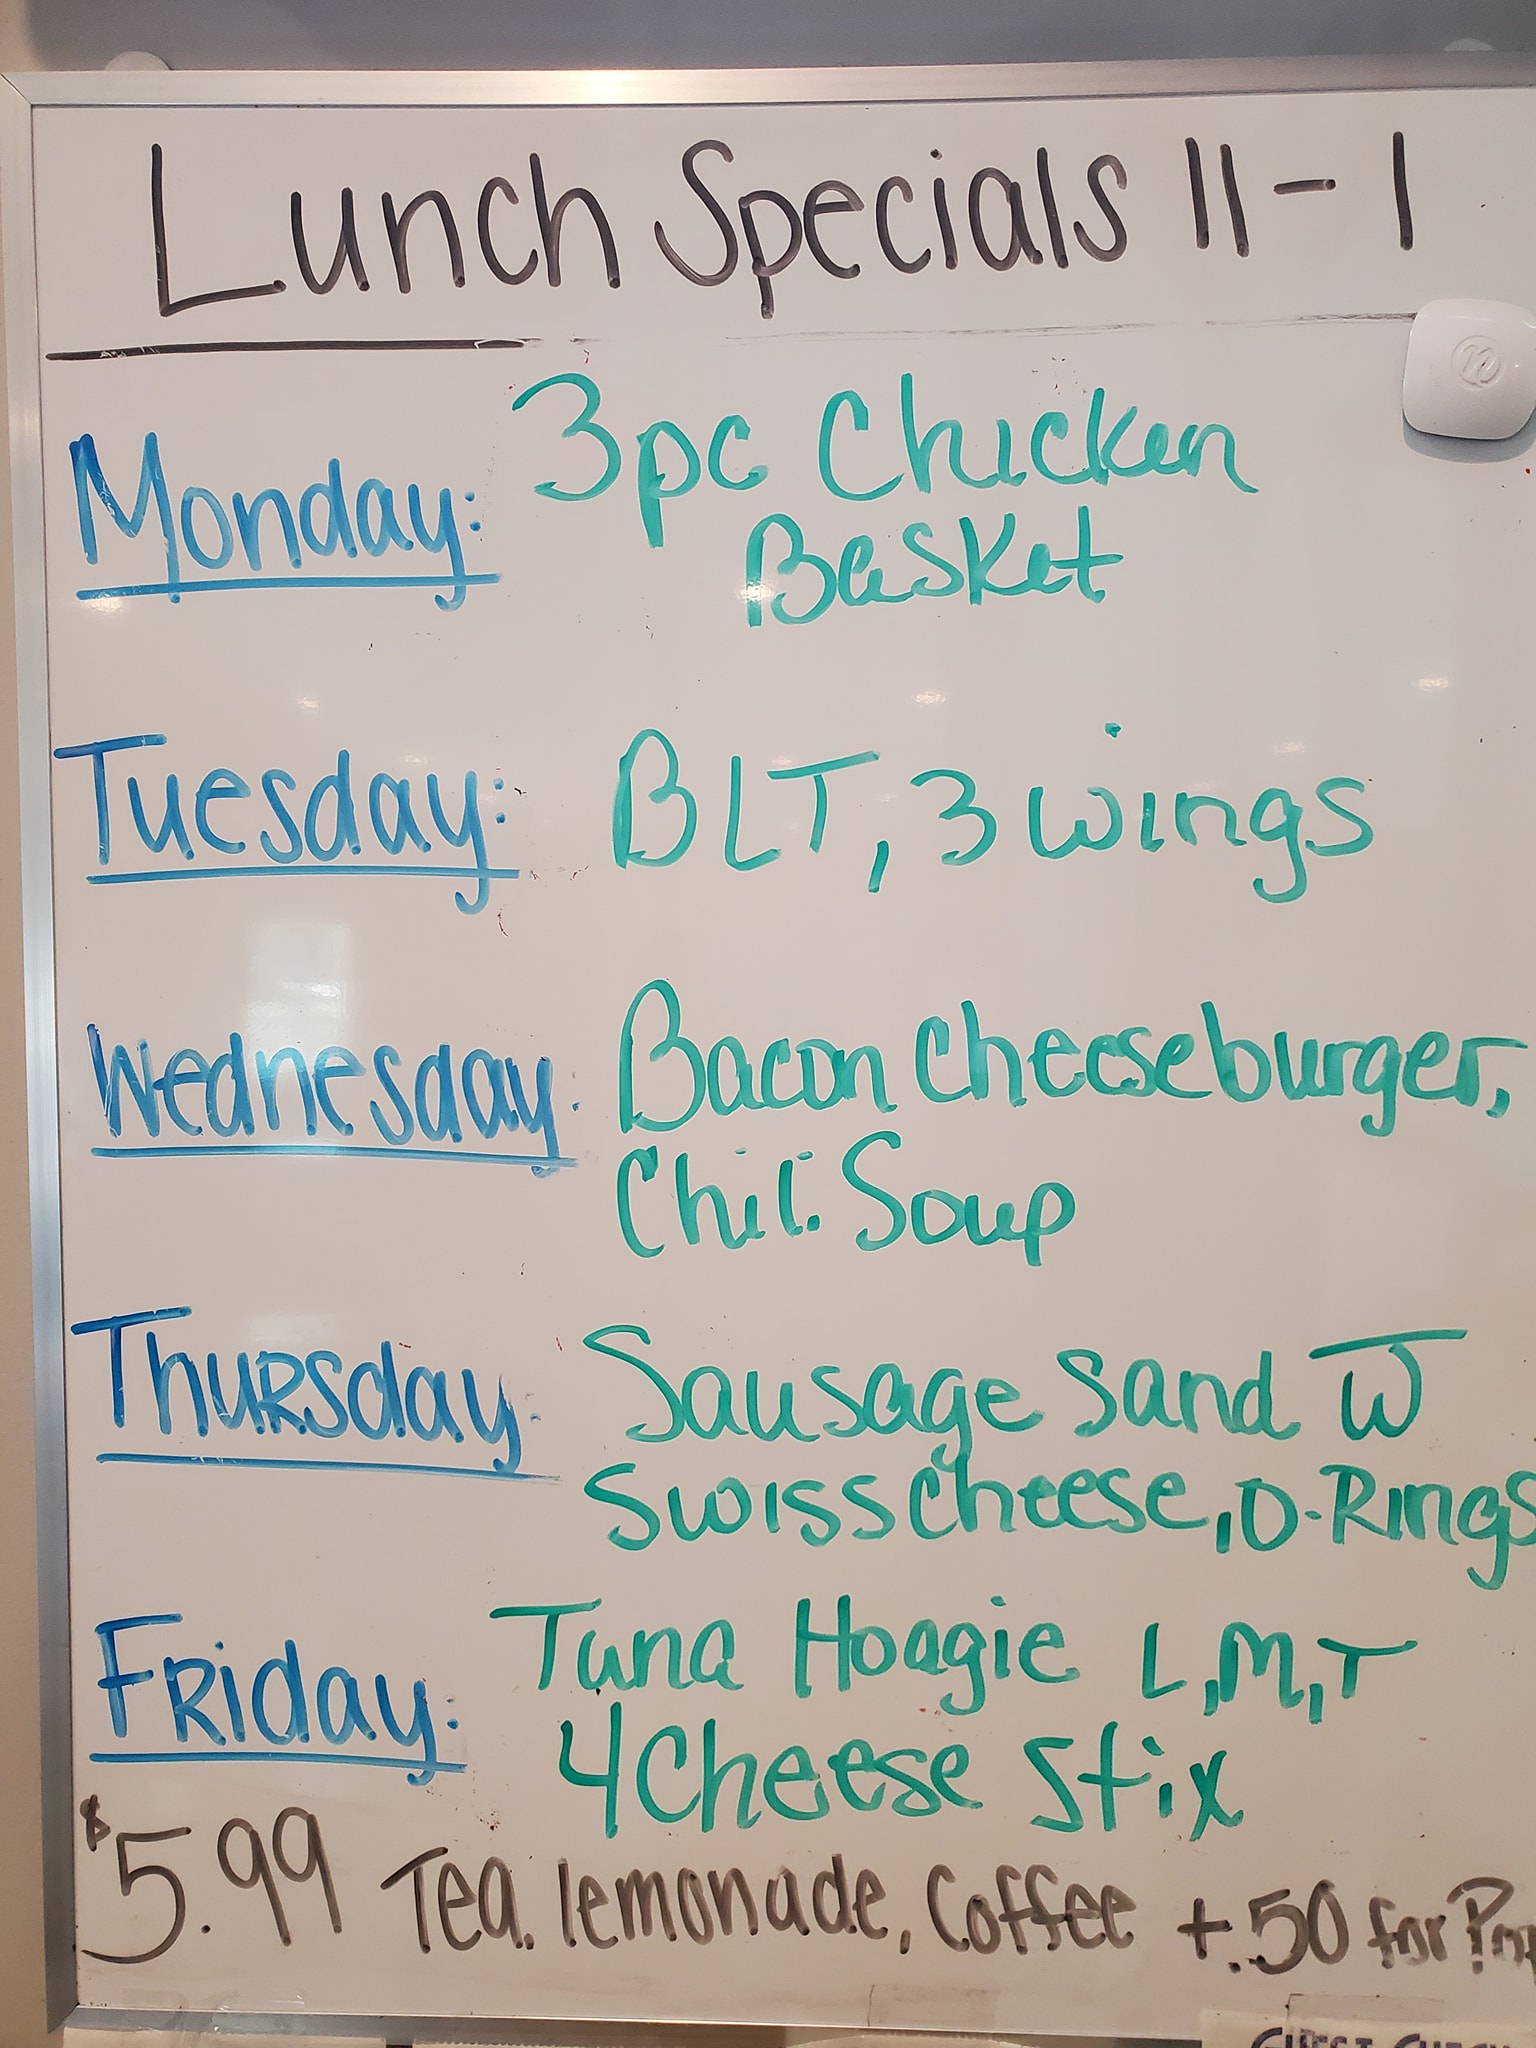 Lunch Specials 11-1
Monday: 3pc Chicken
Basket
Tuesday: BLT, 3 wings
Wednesday: Bacon Cheeseburger,
Chili Soup
Thursday: Sausage Sand W
Swiss Cheese, O-Rings
Friday: Tuna Hoagie L, M, T
4 Cheese Stix
$5.99 Tea, lemonade, Coffee +.50 for